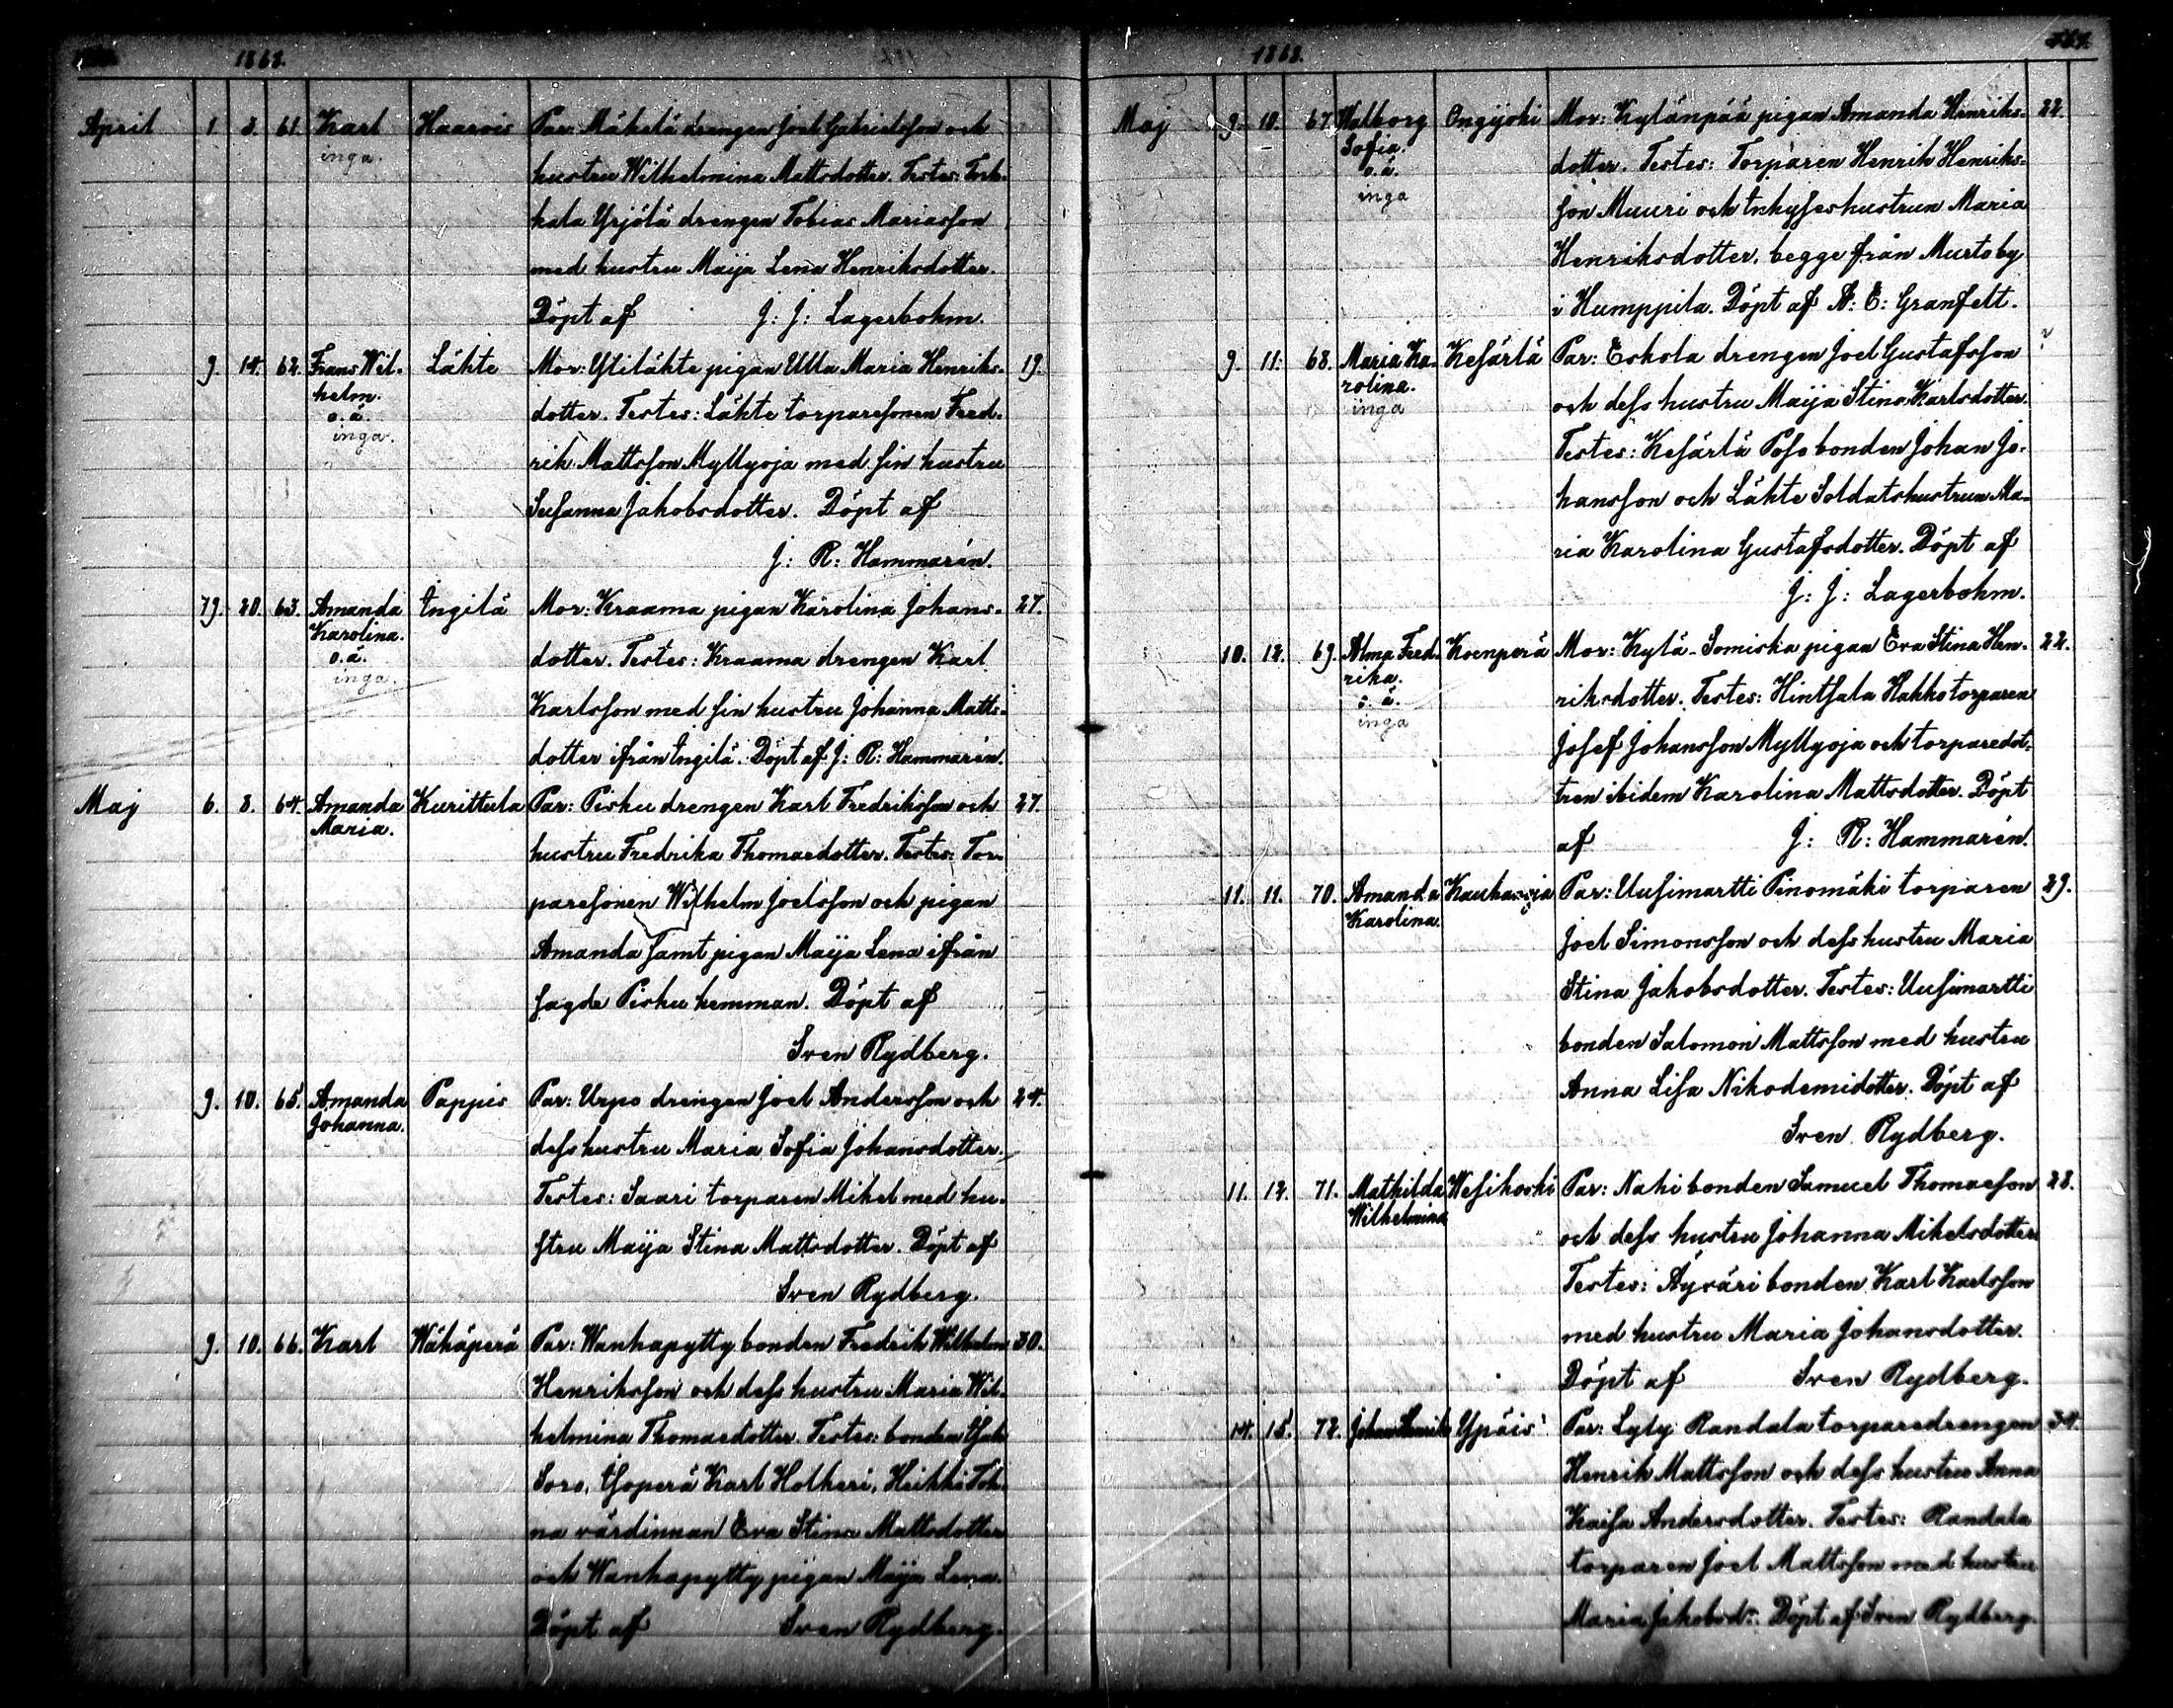 1868.
April 1. 3. 61. Karl Haarois Par: Mäkelä drengen Joel Gabrielsson och
inga. hustru Wilhelmina Mattsdotter. Testes: Tork-
kala Yrjölä drengen Tobias Mariasson
med hustru Maija Lena Henriksdotter.
Döpt af J: J: Lagerbohm.
9. 14. 62. Frans Wil- Läkte Mor: Yliläkte pigan Ulla Maria Henriks- 19.
helm. dotter. Testes: Läkte torparesonen Fred-
o.ä.
inga. rik Mattsson Myllyoja med sin hustru
Susanna Jakobsdotter. Döpt af
J: R: Hammarén.
19. 20. 63. Amanda Ingilä Mor: Kraama pigan Karolina Johans- 27.
Karolina.
o.ä. dotter. Testes: Kraama drengen Karl
inga.
Karlsson med sin hustru Johanna Matts-
dotter ifrån Ingilä. Döpt af J: R: Hammarén.
Maj 6. 8. 64. Amanda Kurittula Par: Pisku drengen Karl Fredriksson och 27.
Maria. hustru Fredrika Thomasdotter. Testes: Tor-
paresonen Wilhelm Joelsson och pigan
Amanda samt pigan Maija Lena ifrån
sagde Pisku hemman. Döpt af
Sven Rydberg.
9. 10. 65. Amanda Pappis Par: Urpo drengen Joel Andersson och 24.
Johanna. dess hustru Maria Sofia Johansdotter.
Testes: Saari torparen Mikel med hu-
stru Maija Stina Mattsdotter. Döpt af
Sven Rydberg.
9. 10. 66. Karl Wähäperä Par: Wanhapytty bonden Fredrik Wilhelm 30.
Henriksson och dess hustru Maria Wil-
helmina Thomasdotter. Testes: bonden
Soro, Isoperä Karl Holkeri, Heikki
na värdinnan Eva Stina Mattsdotter
och Wanhapytty pigan Maija Lena.
Döpt af Sven Rydberg.
1868.
Maj 9. 10. 67. Walborg Ongijoki Mor: Kylänpää pigan Amanda Henriks- 22.
Sofia. dotter. Testes: Torparen Henrik Henriks-
o.ä.
inga son Muuri och Inhyseshustrun Maria
Henriksdotter, begge från Murto by
i Humppila. Döpt af A: E: Granfelt.
9. 11. 68. Maria Ka- Kesärlä Par: Eskola drengen Joel Gustafsson ?
rolina. och dess hustru Maija Stina Karlsdotter.
inga
Testes: Kesärlä Poso bonden Johan Jo-
hansson och Läkte Soldatshustrun Ma-
ria Karolina Gustafsdotter. Döpt af
J: J: Lagerbohm.
10. 12. 69. Alma Fred- Koenperä Mor: Kylä-Somiska pigan Eva Stina Hen- 22.
rika. riksdotter. Testes: Hintsala Hakko torparen
o.ä.
inga Josef Johansson Myllyoja och torparedot-
tren ibidem Karolina Mattsdotter. Döpt
af J: R: Hammarén.
11. 11. 70. Amanda Kauhanoja Par: Uusimartti Pinomäki torparen 29.
Karolina. Joel Simonsson och dess hustru Maria
Stina Jakobsdotter. Testes: Uusimartti
bonden Salomon Mattsson med hustru
Anna Lisa Nikodemidotter. Döpt af
Sven Rydberg.
11. 12. 71. Mathilda Wesikoski Par: Naki bonden Samuel Thomasson 28.
Wilhelmina och dess hustru Johanna Mikelsdotter
Testes: Äyväri bonden Karl Karlsson
med hustru Maria Johansdotter.
Döpt af Sven Rydberg.
14. 15. 72. Johan Henrik Ypäis Par: Lyly Randala torparedrengen 34.
Henrik Mattsson och dess hustru Anna
Kaisa Andersdotter. Testes: Randala
torparen Joel Mattsson med hustru
Maria Jakobsdr: Döpt af Sven Rydberg.